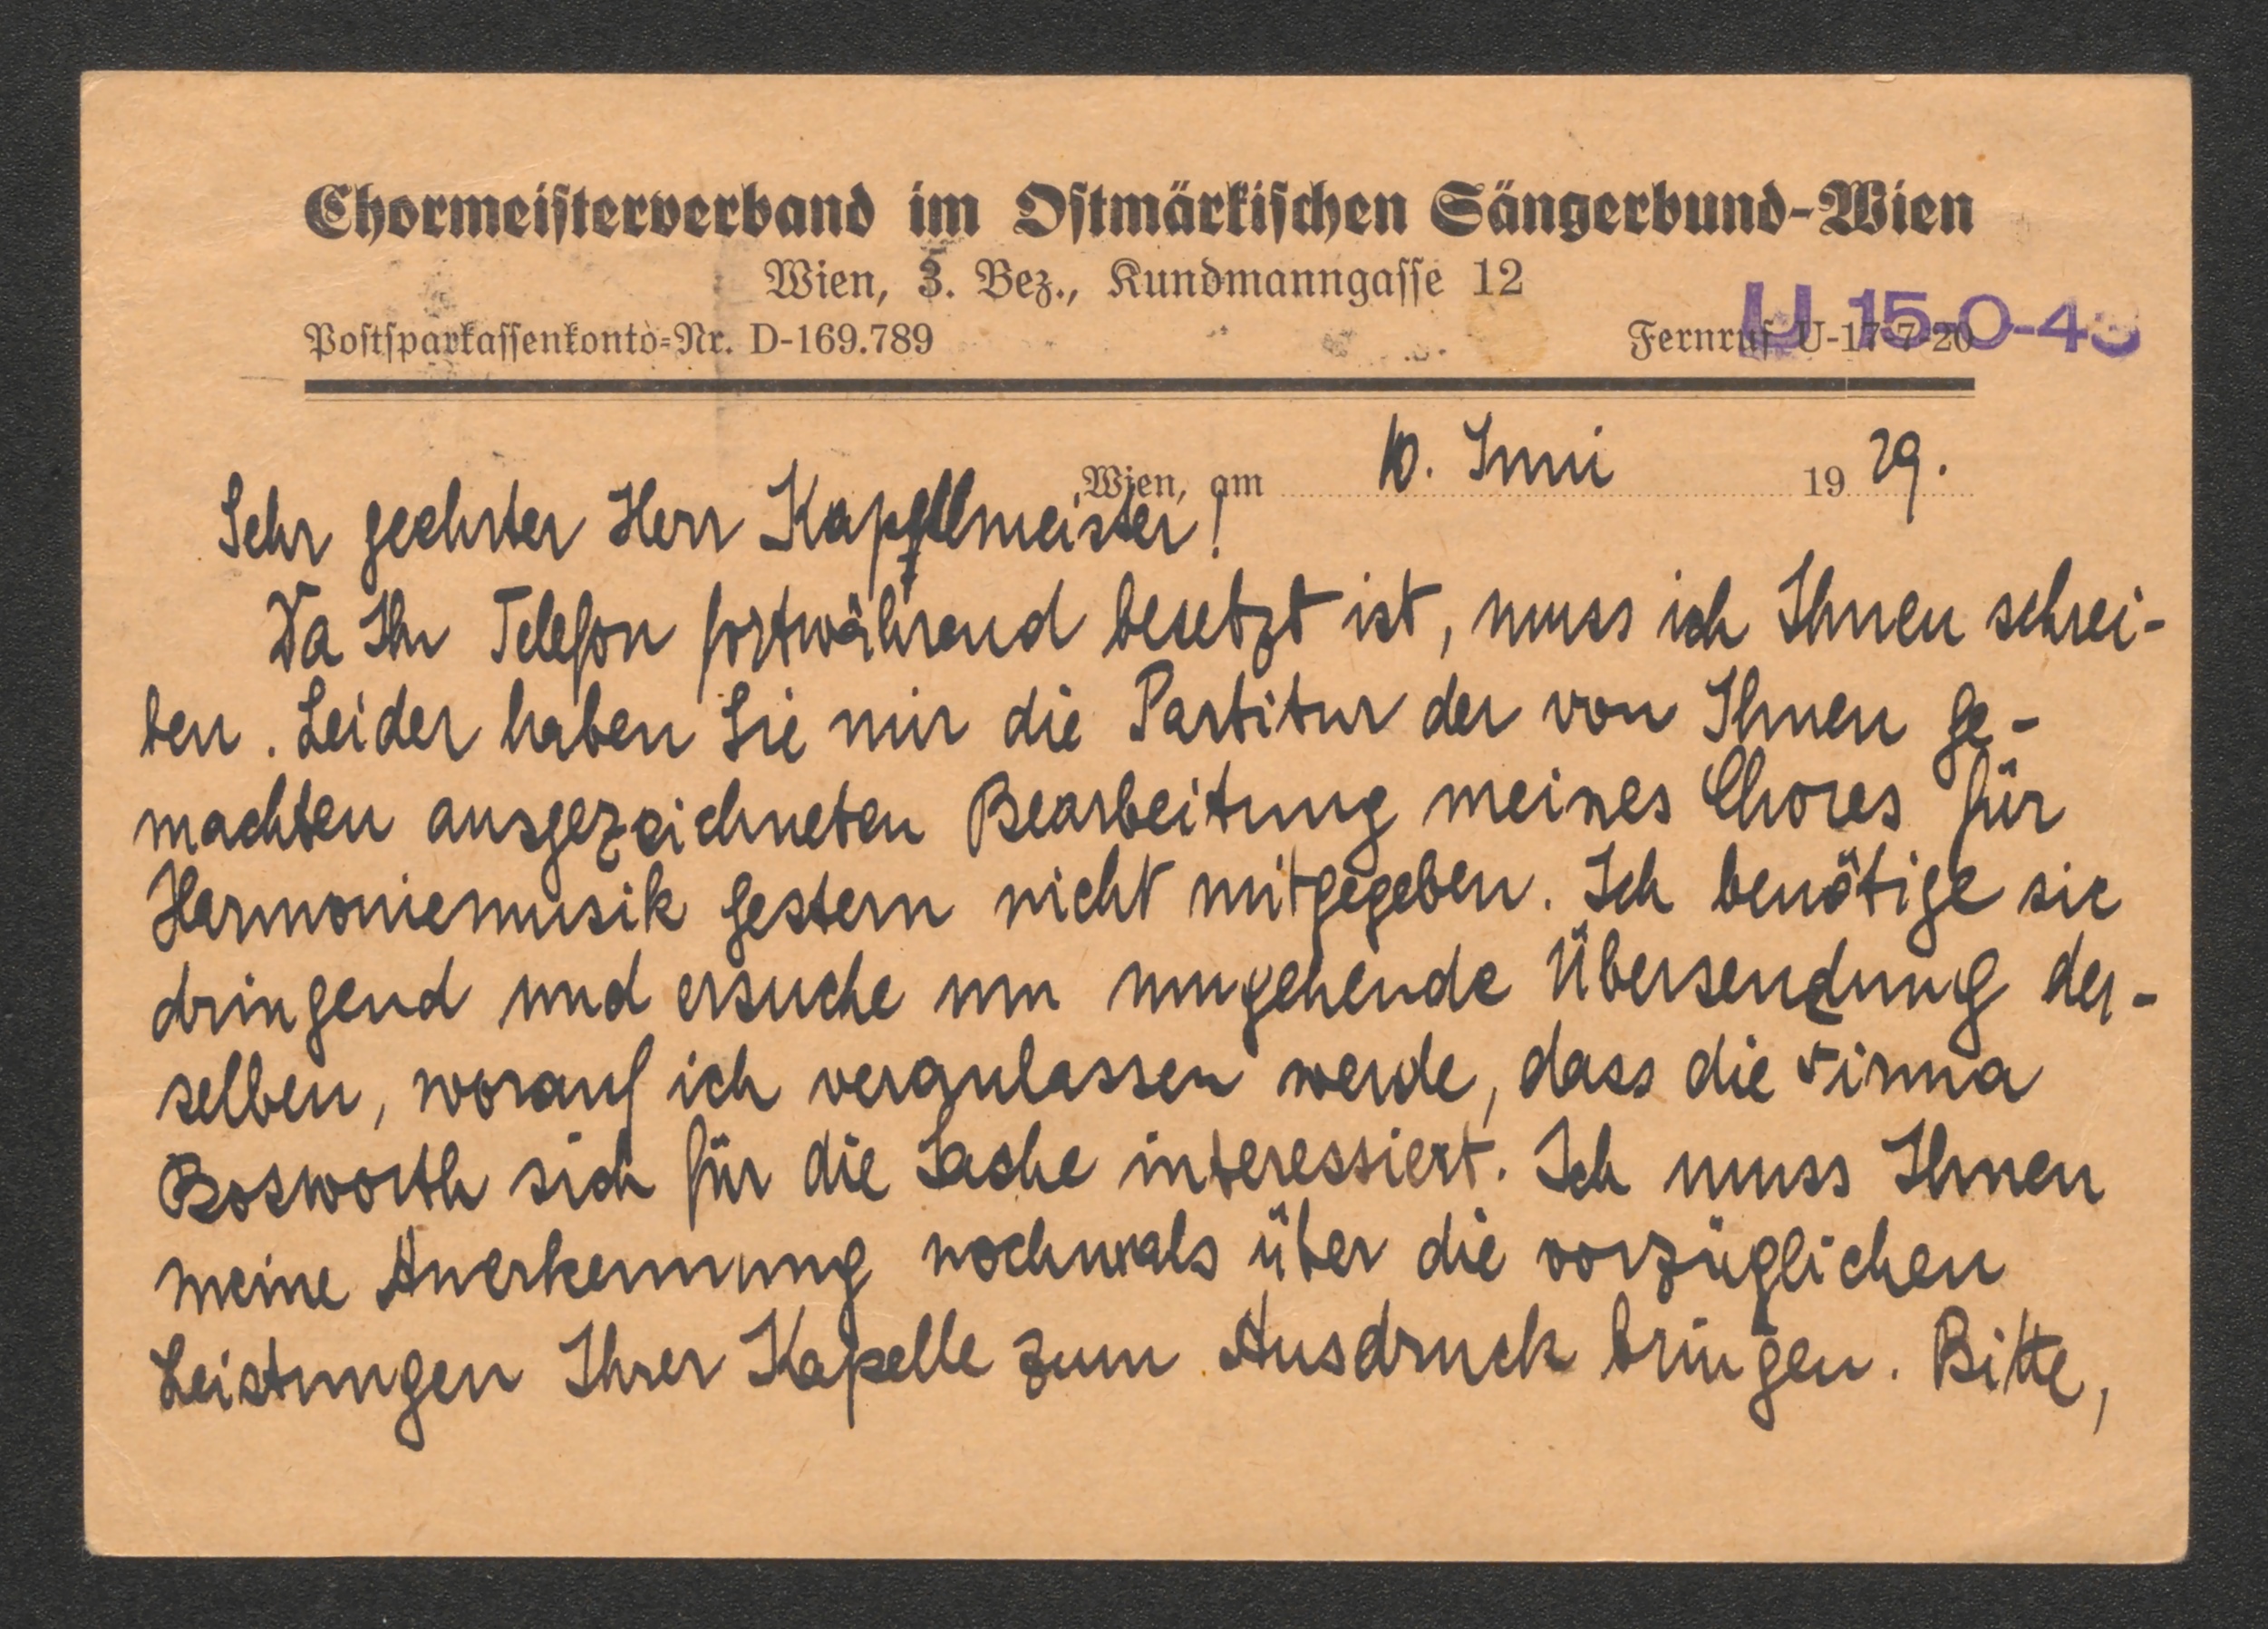 Chormeisterverband im Ostmärkischen Sängerbund-Wien
Wien, 3. Bez., Kundmanngasse 12
Postsparkassenkonto-Nr. D-169.789 Fernruf U-17-7-20
U 15-0-43
Wien, am 10. Juni 1929.
Sehr geehrter Herr Kapellmeister!
Da Ihr Telefon fortwährend besetzt ist, muss ich Ihnen schrei-
ben. Leider haben Sie mir die Partitur der von Ihnen ge-
machten ausgezeichneten Bearbeitung meines Chores für
Harmoniemusik gestern nicht mitgegeben. Ich benötige sie
dringend und ersuche um umgehende Übersendung der-
selben, worauf ich veranlassen werde, dass die Firma
Bosworth sich für die Sache interessiert. Ich muss Ihnen
meine Anerkennung nochmals über die vorzüglichen
Leistungen Ihrer Kapelle zum Ausdruck bringen. Bitte,